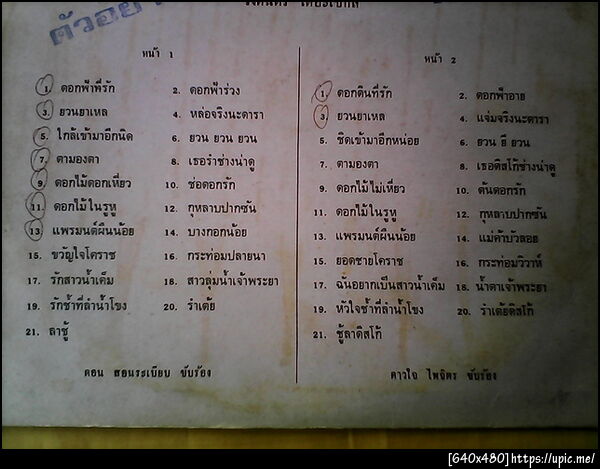 ตัวอย่
หน้า 1
1. ดอกฟ้าที่รัก
2. ดอกฟ้าร่วง
3. ยวนยาเหล
4. หล่อจริงนะดารา
5. ใกล้เข้ามาอีกนิด
6. ยวน ยวน ยวน
7. ตามองตา
8. เธอรำช่างน่าดู
9. ดอกไม้ดอกเหี่ยว
10. ช่อดอกรัก
11. ดอกไม้ในรูหู
12. กุหลาบปากซัน
13. แพรมนต์ผืนน้อย
14. บางกอกน้อย
15. ขวัญใจโคราช
16. กระท่อมปลายนา
17. รักสาวน้ำเค็ม
18. สาวลุ่มน้ำเจ้าพระยา
19. รักช้ำที่ลำน้ำโขง
20. รำเต้ย
21. ลาชู้
ตอน สอนระเบียบ ขับร้อง
หน้า 2
1. ดอกดินที่รัก
2. ดอกฟ้าอาย
3. ยวนยาเหล
4. แจ่มจริงนะดารา
5. ชิดเข้ามาอีกหน่อย
6. ยวน ยี ยวน
7. ตามองตา
8. เธอดิสโก้ช่างน่าดู
9. ดอกไม้ไม่เหี่ยว
10. ต้นดอกรัก
11. ดอกไม้ในรูหู
12. กุหลาบปากซัน
13. แพรมนต์ผืนน้อย
14. แม่ค้าบัวลอย
15. ยอดชายโคราช
16. กระท่อมวิวาห์
17. ฉันอยากเป็นสาวน้ำเค็ม
18. น้ำตาเจ้าพระยา
19. หัวใจช้ำที่ลำน้ำโขง
20. รำเต้ยดิสโก้
21. ชู้ลาดิสโก้
ดาวใจ ไพจิตร ขับร้อง
[640x480]https://upic.me/